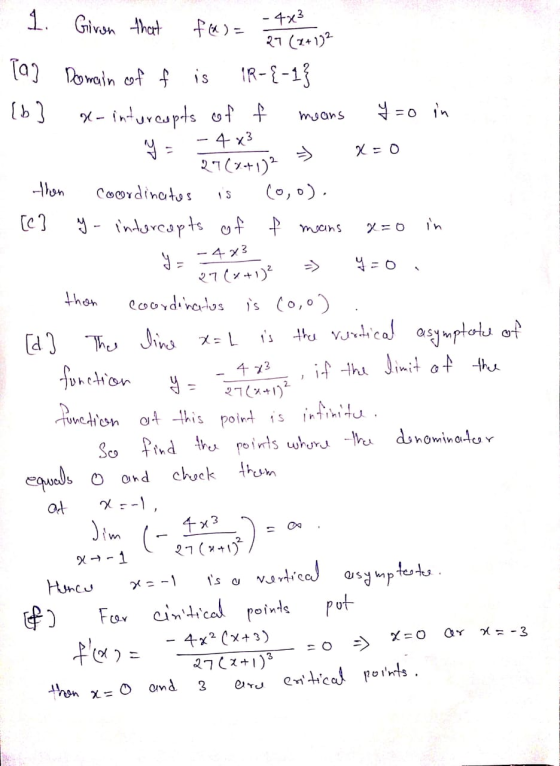 1. Given that f(x) = -4x³ / 27(x+1)²
[a] Domain of f is IR-{-1}
[b] x-intercepts of f means y=0 in
y = -4x³ / 27(x+1)² ⇒ x = 0
then coordinates is (0,0).
[c] y-intercepts of f means x=0 in
y = -4x³ / 27(x+1)² ⇒ y = 0.
then coordinates is (0,0)
[d] The line x=L is the vertical asymptote of
function y = -4x³ / 27(x+1)², if the limit of the
function at this point is infinite.
So find the points where the denominator
equals 0 and check them
at x=-1,
lim x→-1 (-4x³ / 27(x+1)²) = ∞.
Hence x=-1 is a vertical asymptote.
[f] For critical points put
f'(x) = -4x²(x+3) / 27(x+1)³ = 0 ⇒ x=0 or x=-3
then x=0 and 3 are critical points.